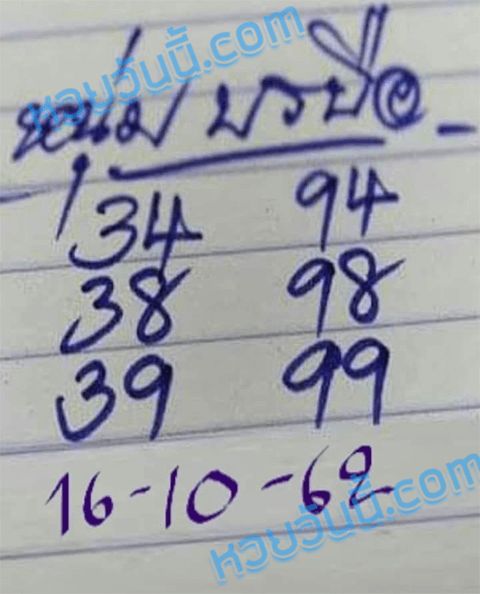 หวยวันนี้.com
หนุ่ม บรบือ
34 94
38 98
39 99
16-10-62
หวยวันนี้.com